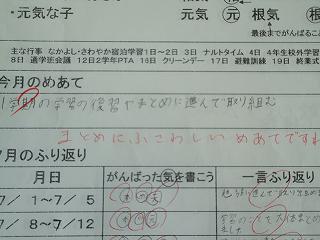 ・元気な子
元気 元 根気
最後までがんばるこ
主な行事 なかよし・さわやか宿泊学習1日～2日 3日 ナルトタイム 4日 4年生校外学習
8日 通学班会議 12日2学年PTA 16日 クリーンデー 17日 避難訓練 19日 終業式
今月のめあて
1学期の学習の復習やまとめに進んで取り組む
まとめにふさわしいめあてですね
7月のふり返り
月日 がんばった気を書こう 一言ふり返り
7/ 1～7/ 5
7/ 8～7/12